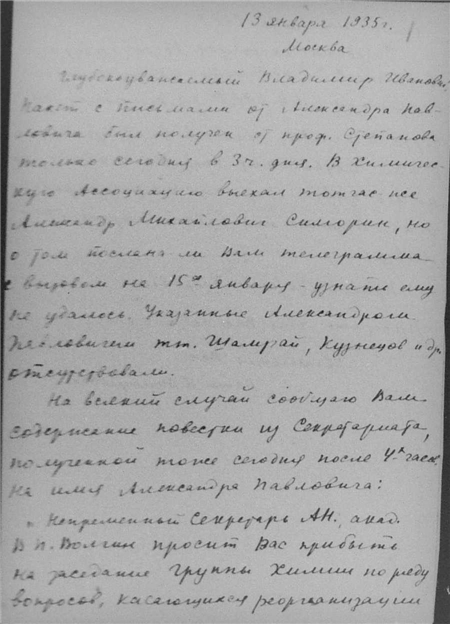 13 января 1935 г.
Москва
Глубокоуважаемый Владимир Иванович!
Пакет с письмами от Александра Пав-
ловича был получен от проф. Степанова
только сегодня в 3 ч. дня. В Химичес-
кую Ассоциацию выехал тотчас же
Александр Михайлович Симорин, но
о том послана-ли Вам телеграмма
с вызовом на 15ое января - узнать ему
не удалось. Указанные Александром
Павловичем тт. Шамрай, Кузнецов и др.
отсутствовали.
На всякий случай сообщаю Вам
содержание повестки из Секретариата,
полученной тоже сегодня после 4х часов
на имя Александра Павловича:
„Непременный Секретарь АН, акад.
В.П. Волгин просит Вас прибыть
на заседание группы Химии по ряду
вопросов, касающихся реорганизации